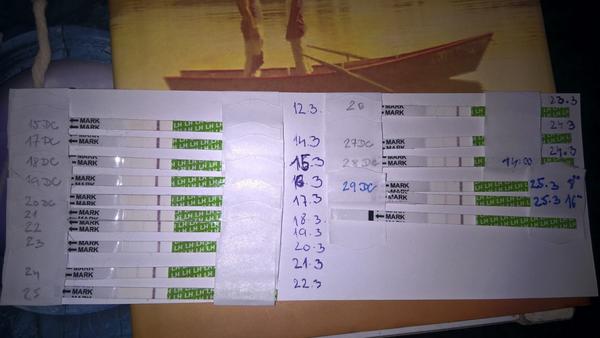 15DC MARK LH LH LH LH 12.3.
MARK
17DC MARK LH LH LH LH 14.3
18DC MARK LH LH LH LH 15.3
19DC MARK LH LH LH LH 16.3
20DC MARK LH LH LH LH 17.3
21 MARK LH LH LH LH 18.3.
22 MARK LH LH LH LH 19.3
23 MARK LH LH LH LH 20.3
24 MARK LH LH LH LH 21.3
25 MARK LH LH LH LH 22.3
MARK LH 23.3
27DC MARK LH 24.3
28DC MARK LH 14:00 24.3
29DC MARK LH LH LH LH 25.3 8
MARK LH LH LH LH 25.3 16
MARK LH LH LH LH